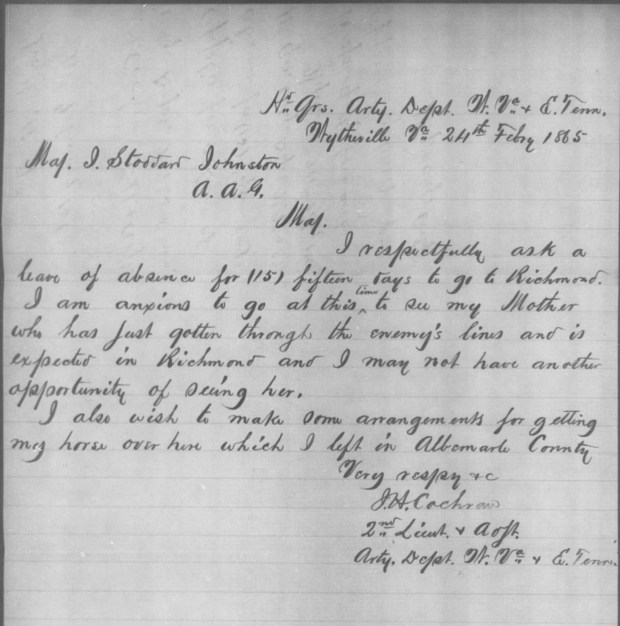 Hd Qrs. Arty. Dept. W. Va & E. Tenn.
Wytheville Va 24th Febry 1865
Maj. J. Stoddard Johnston
A. A. G.
Maj.
I respectfully ask a
leave of absence for (15) fifteen days to go to Richmond.
I am anxious to go at this time to see my Mother
who has just gotten through the enemy's lines and is
expected in Richmond and I may not have another
opportunity of seeing her.
I also wish to make some arrangements for getting
my horse over here which I left in Albemarle County
Very respy &c
J. H. Cochran
2nd Lieut. & Adjt.
Arty. Dept. W. Va & E. Tenn.